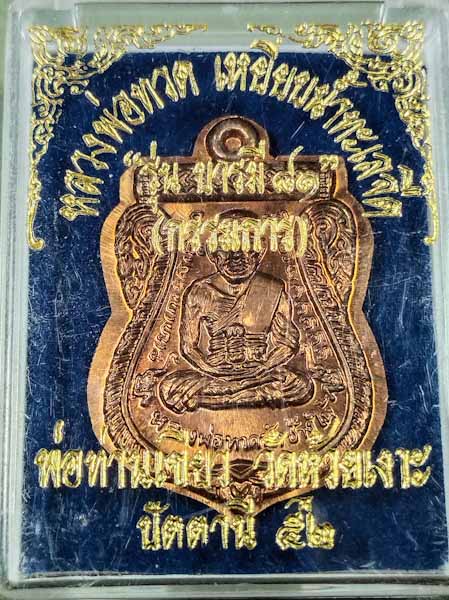 หลวงพ่อทวด เหยียบน้ำทะเลจืด
"รุ่น บารมี ๘๑"
(กรรมการ)
พ่อท่านเขียว วัดห้วยเงาะ
ปัตตานี ๕๒